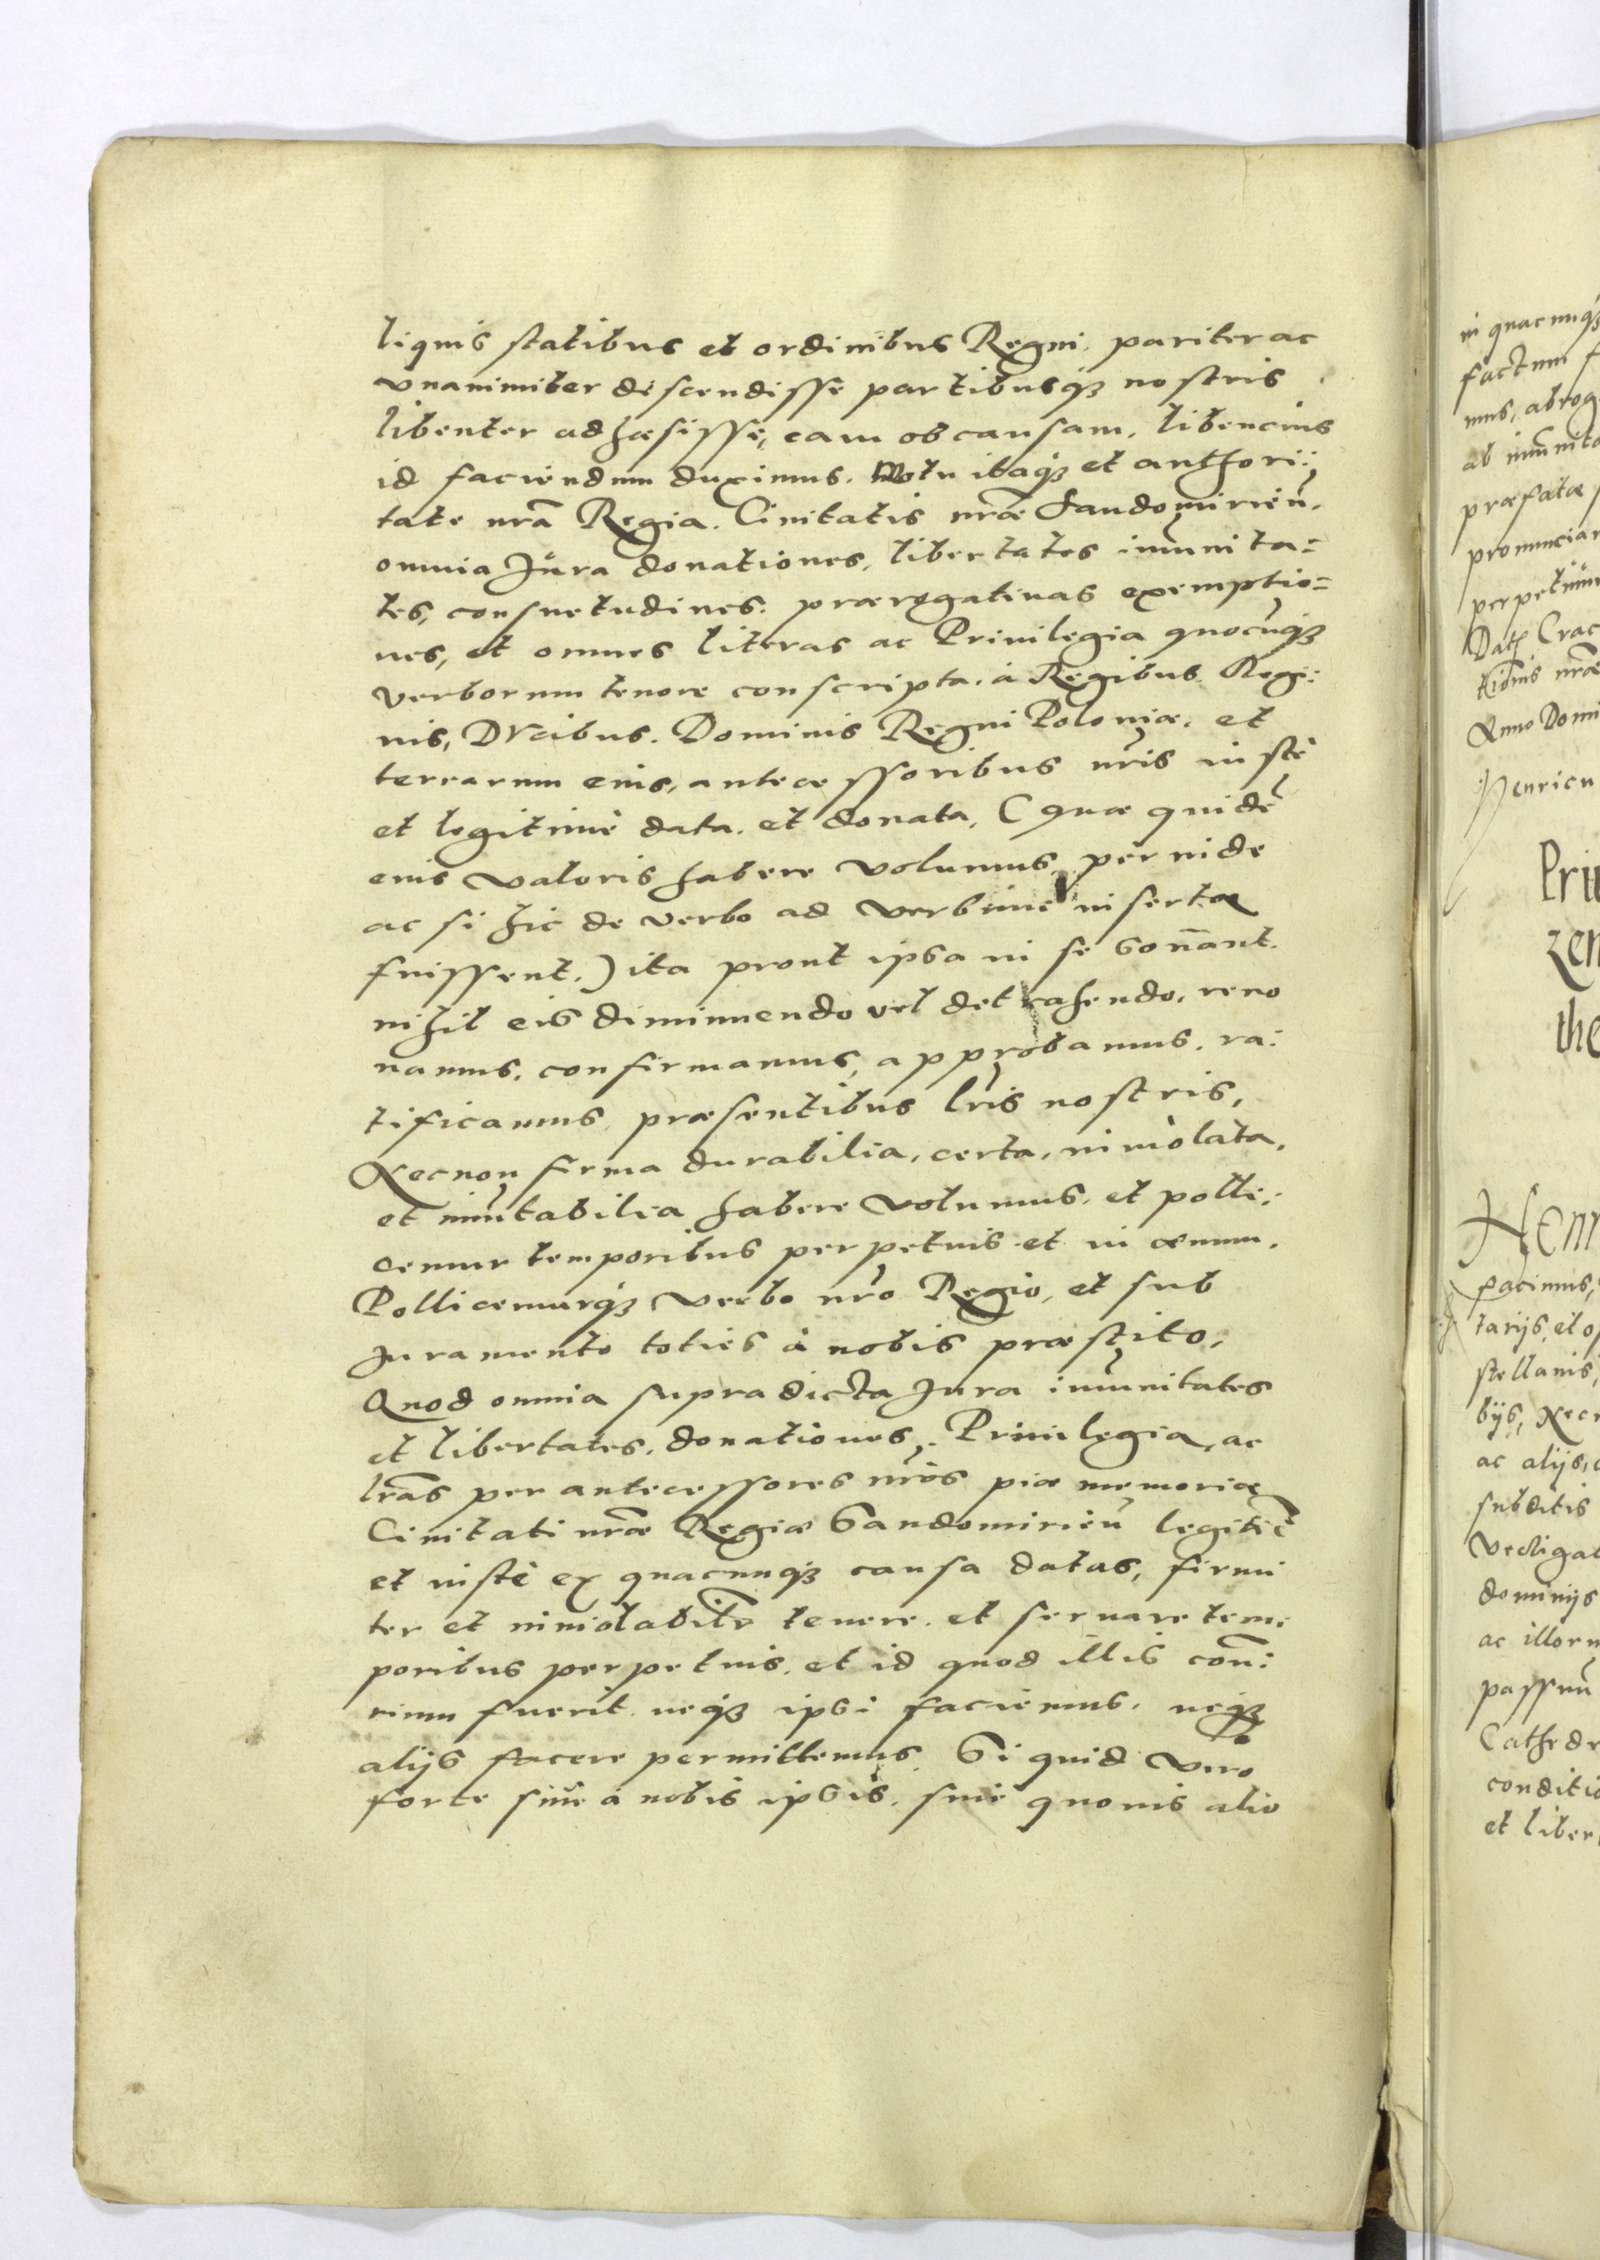 liquis statibus et ordinibus Regni, pariter ac
vnanimiter descendisse partibusq₃ nostris
libenter adhæsisse, eam ob causam, libencius
id faciendum duximus. Motu itaq₃ et authori:
tate nrā Regia. Ciuitatis nrǣ Sandomirien̄.
omnia Jura donationes, libertates im̄unita=
tes, consuetudines, prærogatiuas exemptio=
nes, et omnes literas ac Priuilegia quocūq₃
verborum tenore conscripta, à Regibus Regi:
nis, Ducibus. Dominis Regni Poloniæ, et
terrarum eius, antecessoribus nr̄is iustè
et legitimè data, et donata, (quæ quidē
eius valoris habere volumus perinde
ac si hic de verbo ad verbum inserta
fuissent.) ita prout ipsa in se sonant.
nihil eis diminuendo vel detrahendo, reno
uamus, confirmamus, approbamus, ra:
tificamus, præsentibus lr̄is nostris,
Necnon firma durabilia, certa, inuiolata,
et im̄utabilia habere volumus, et polli:
cemur temporibus perpetuis et in æuum.
Pollicemurq₃ verbo nr̄o Regio, et sub
Juramento toties à nobis præstito,
Quod omnia supradicta Jura im̄unitates
et libertates, donationes, Priuilegia, ac
lr̄as per antecessores nr̄os piæ memoriæ
Ciuitati nrǣ Regiæ Sandomirien̄ legitiē
et iustè ex quacunq₃ causa datas, firmi
ter et inuiolabilr̄ tenere, et seruare tem:
poribus perpetuis, et id quod illis con̄:
rium fuerit neq₃ ipsi faciemus, neq₃
alijs facere permittemus. Si quid vero
forte siue à nobis ipsis, siue quouis alio
in quacunq₃
factum
mus, abrog
præfatæ
pronuncia
perpetuum
Dat Crac
tionis nrǣ
Anno Domi
Henricu
Priu
zen
the
Henr
facimus,
tarijs, et o
stellanis,
bijs, Nec
ac alijs,
subditis
vectigal
dominijs
ac illoru
passuū
Cathedr
conditio
et liber